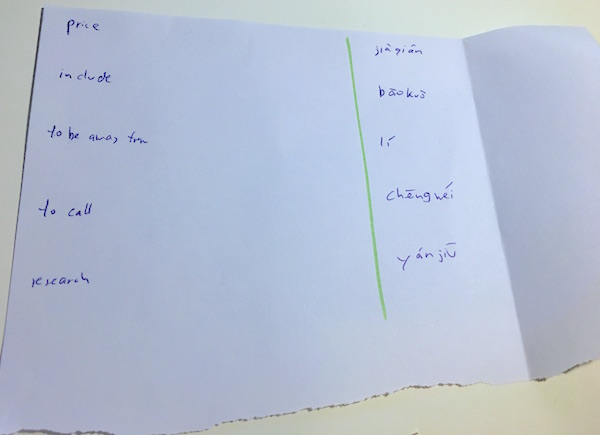 price
jiàqián
include
bāokuò
to be away from
lí
to call
chēngwéi
research
yánjiū